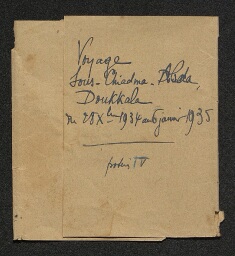 Voyage
Sous-Chiadma-Abda,
Doukkala
du 28 Xbre 1934 au 6 janvier 1935